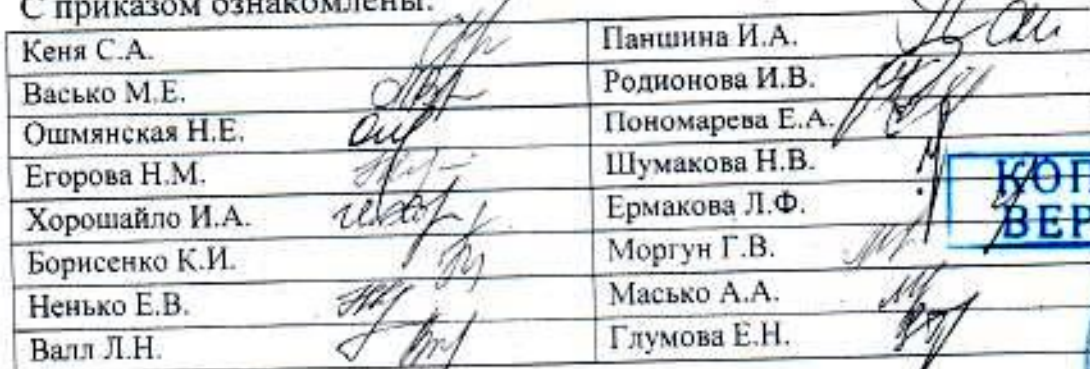 С приказом ознакомлены:
Кеня С.А. Паншина И.А.
Васько М.Е. Родионова И.В.
Ошмянская Н.Е. Пономарева Е.А.
Егорова Н.М. Шумакова Н.В.
Хорошайло И.А. Ермакова Л.Ф.
Борисенко К.И. Моргун Г.В.
Ненько Е.В. Масько А.А.
Валл Л.Н. Глумова Е.Н.
КОП
ВЕР